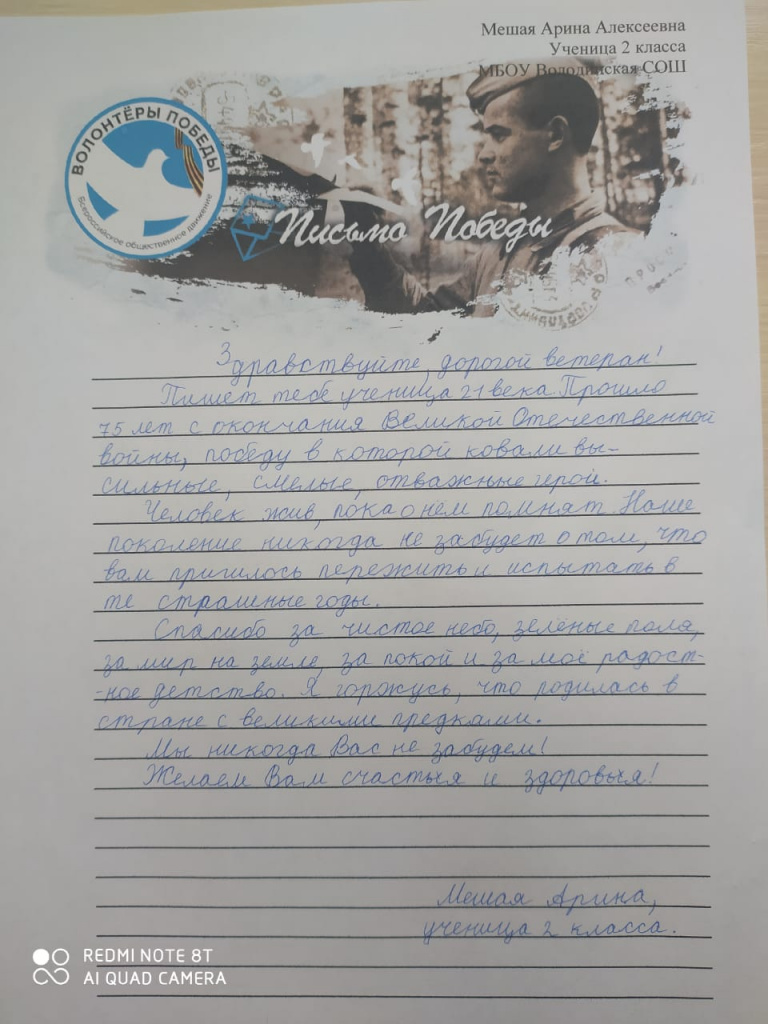 Мешая Арина Алексеевна
Ученица 2 класса
МБОУ Володинская СОШ
ВОЛОНТЁРЫ ПОБЕДЫ
Всероссийское общественное движение
Письмо Победы
Здравствуйте, дорогой ветеран!
Пишет тебе ученица 21 века. Прошло
75 лет с окончания Великой Отечественной
войны, победу в которой ковали вы-
сильные, смелые, отважные герой.
Человек жив, пока о нём помнят. Наше
поколение никогда не забудет о том, что
вам пришлось пережить и испытать в
те страшные годы.
Спасибо за чистое небо, зелёные поля,
за мир на земле, за покой и за моё радост-
-ное детство. Я горжусь, что родилась в
стране с великими предками.
Мы никогда Вас не забудем!
Желаем Вам счастья и здоровья!
Мешая Арина,
ученица 2 класса.
REDMI NOTE 8T
AI QUAD CAMERA